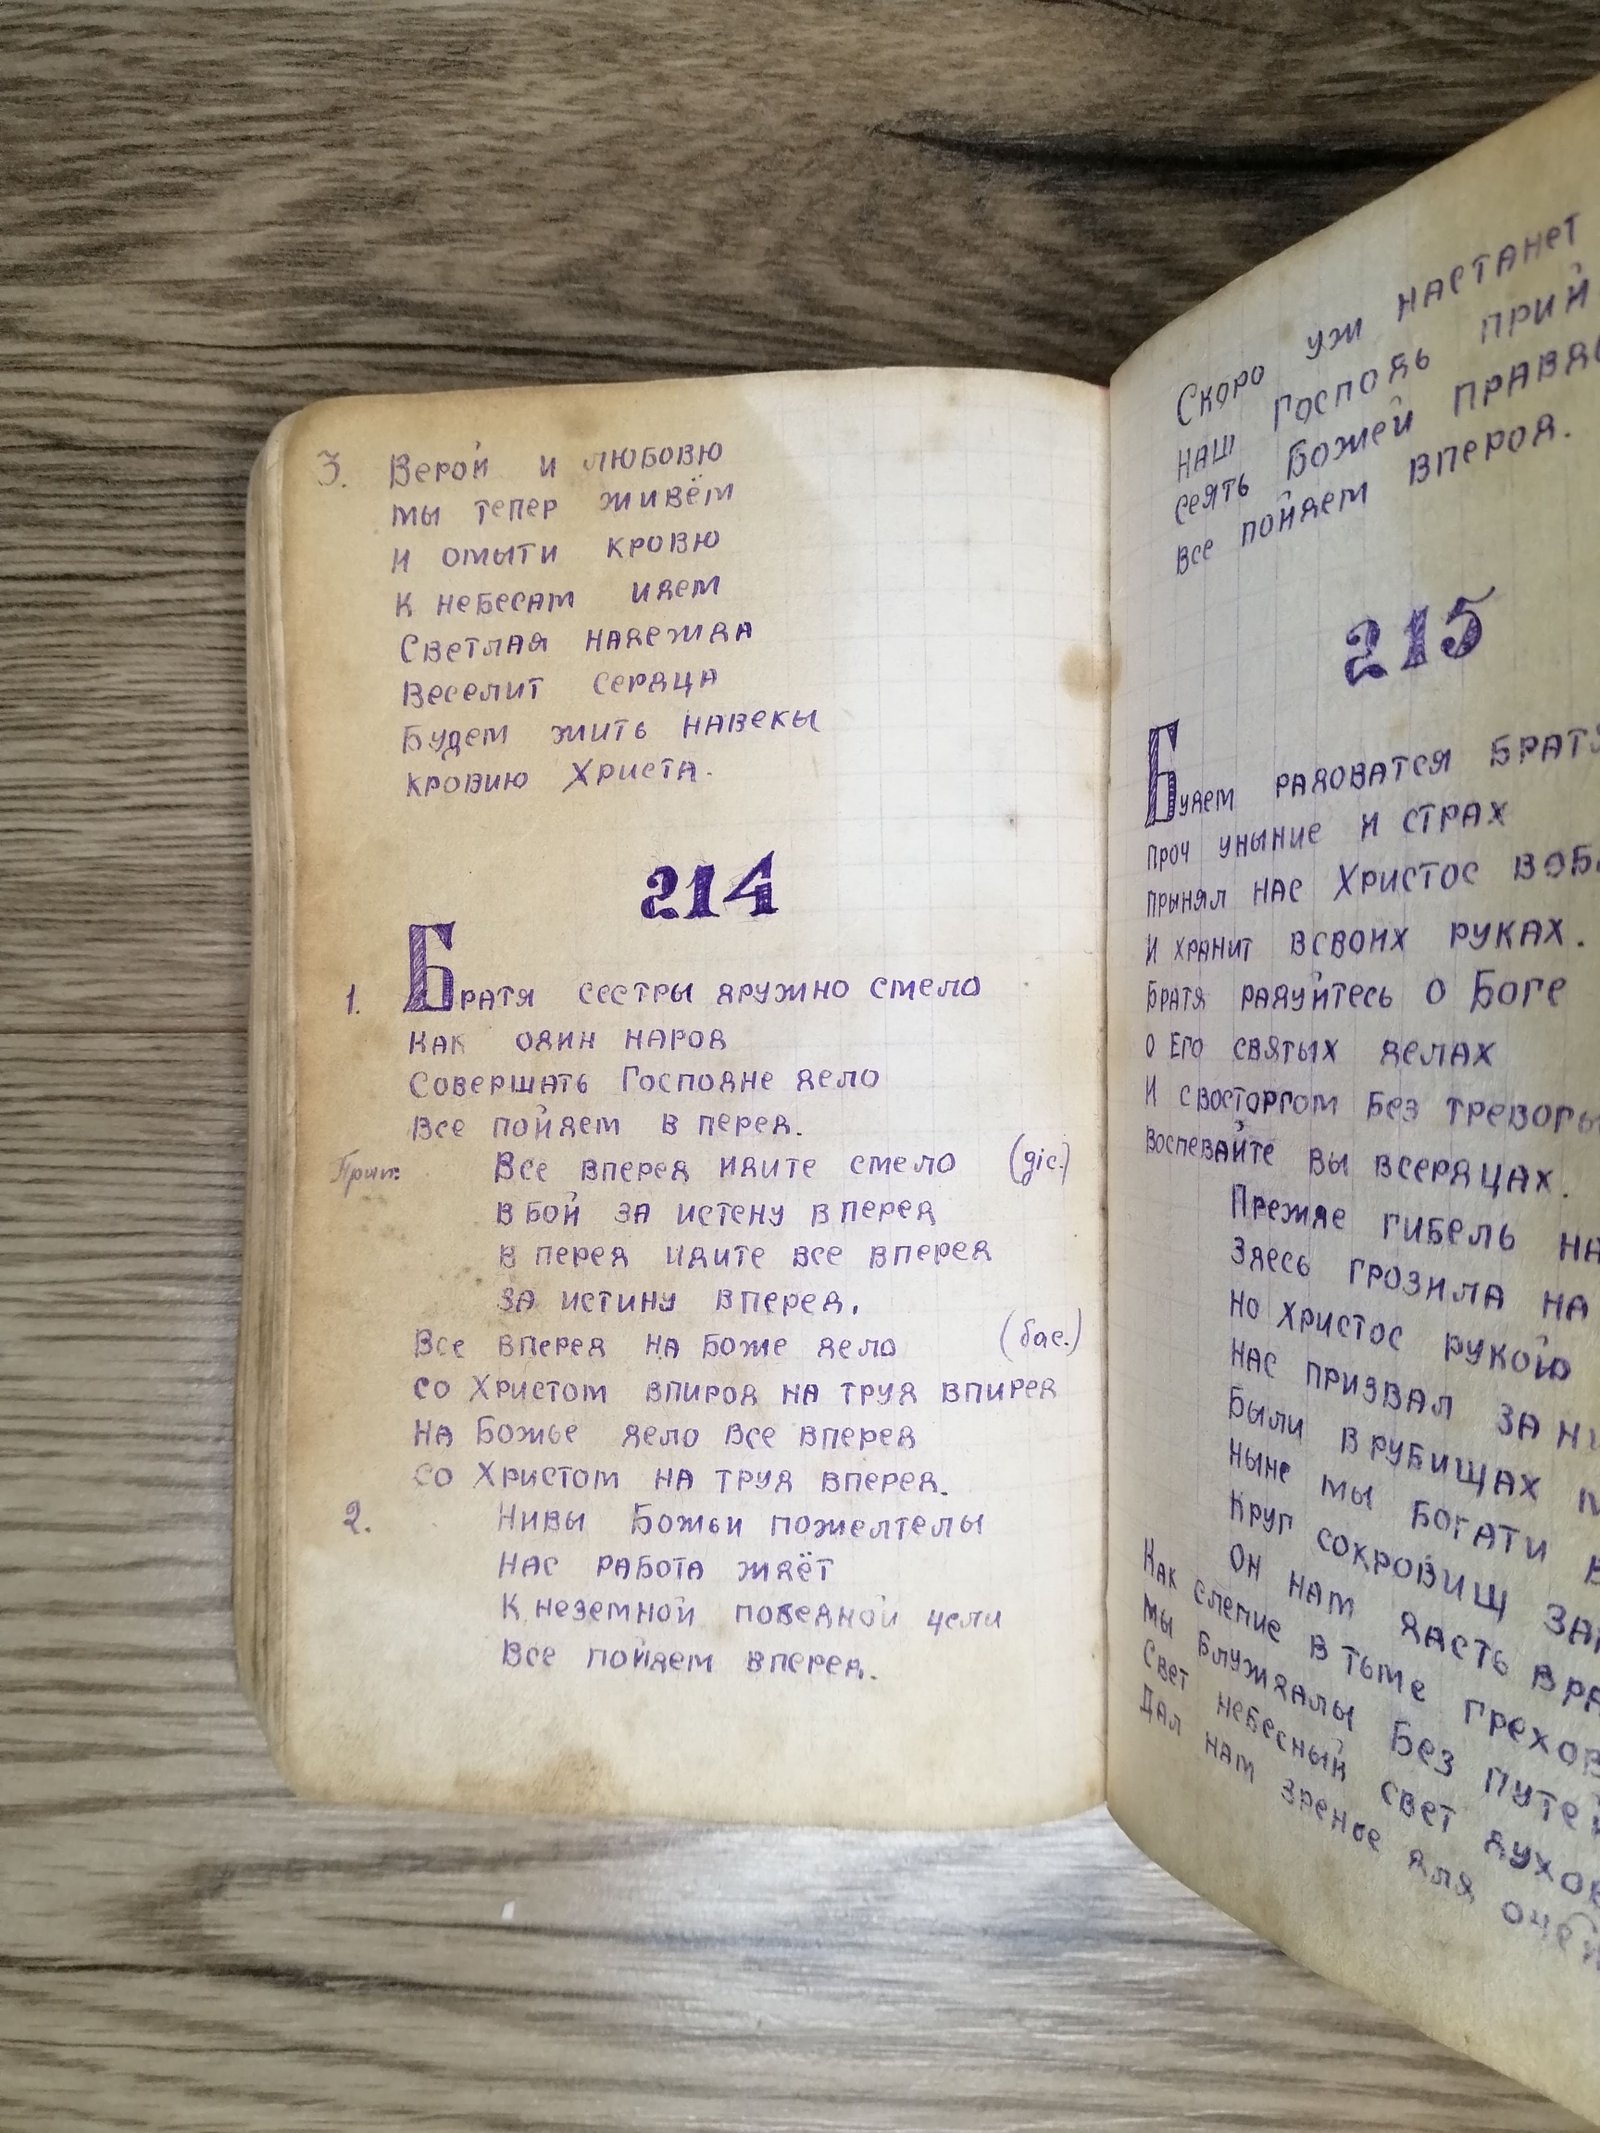 3. Верой и любовю
мы тепер живём
И омыти кровю
К небесам идем
Светлая надежда
Веселит сердца
Будем жить навекы
кровию Христа.
214
1. Братя сестры дружно смело
как один народ
Совершать Господне дело
Все пойдем в перед.
Прип: Все вперед идите смело (діс.)
в бой за истену в перед
в перед идите все вперед
за истину вперед.
Все вперед на Боже дело (бас.)
со Христом впирод на труд впиред
На Божье дело Все вперед
со Христом на труд вперед.
2. Нивы Божьи пожелтелы
Нас работа ждёт
К неземной победной цели
Все пойдем вперед.
Скоро уж настанет
наш Господь
сеять Божей
все пойдем вперод.
215
Будем радоватся
проч уныние и страх
прынял нас Христос
И хранит всвоих руках.
Братя радуйтесь о Боге
о Его святых делах
И свосторгом Без
воспевайте вы всердцах.
Прежде гибель
Здесь грозила на
но Христос рукою
нас призвал
Были врубищах
ныне мы богати
Круг сокровищ
Он нам дасть
Как слепие в тьме
мы блуждалы Без
Свет небесный свет
Дал нам зренье для